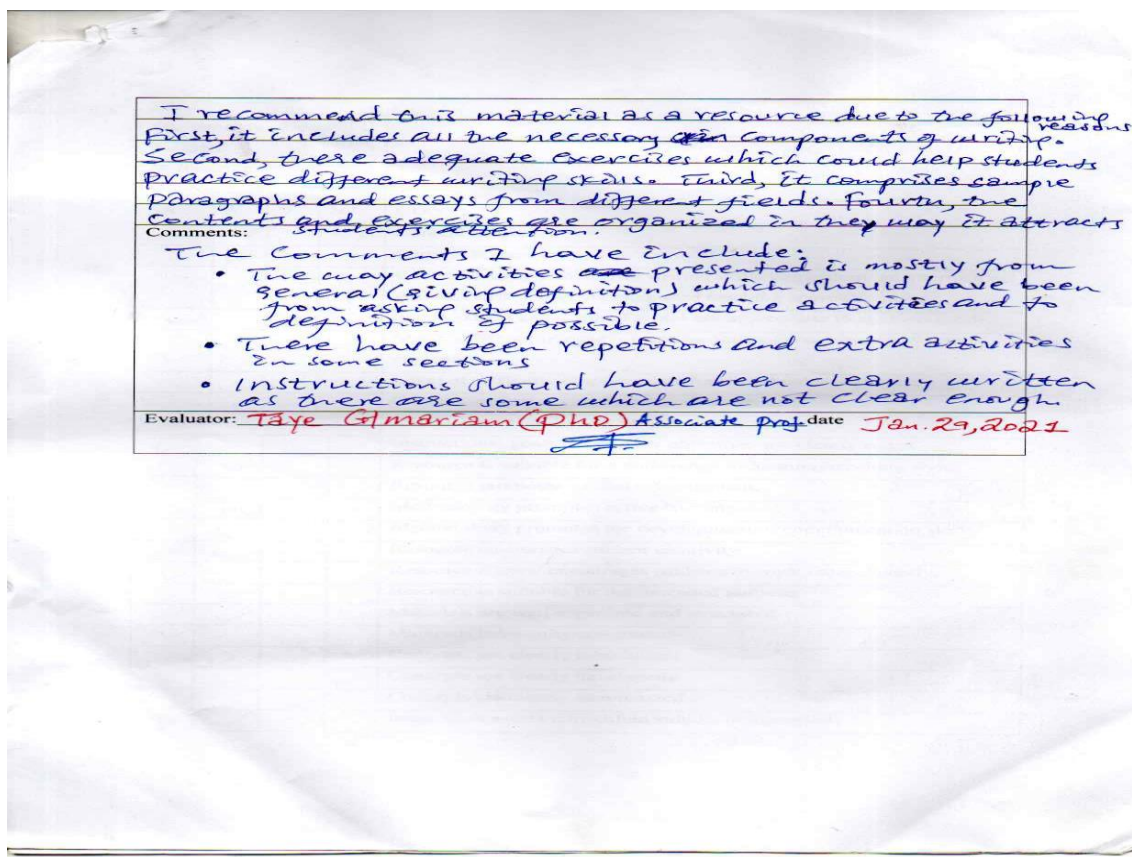 I recommend this material as a resource due to the following reasons
First, it includes all the necessary components of writing.
Second, these adequate exercises which could help students
practice different writing skills. Third, it comprises sample
paragraphs and essays from different fields. Fourth, the
contents and exercises are organized in they way it attracts
students attention.
Comments:
The comments I have include:
• The way activities presented is mostly from
general (giving definition) which should have been
from asking students to practice activities and to
definition if possible.
• There have been repetitions and extra activities
in some sections
• Instructions should have been clearly written
as there are some which are not clear enough.
Evaluator: Taye G/mariam (PhD) Associate prof. date Jan. 29, 2021